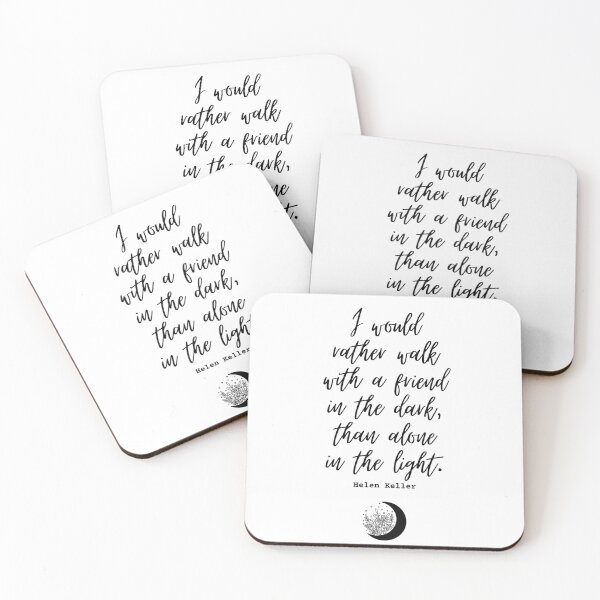 I would
rather walk
with a friend
in the dark,
alone
I would
rather walk
with a friend
in the dark,
than alone
in the light.
I would
rather walk
with a friend
in the dark,
than alone
in the light
Helen Keller
I would
rather walk
with a friend
in the dark,
than alone
in the light.
Helen Keller